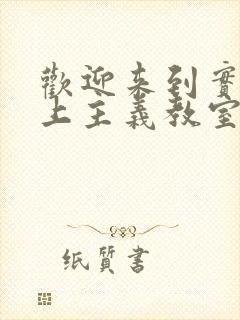 歡迎来到實
上主義教室
纸質書